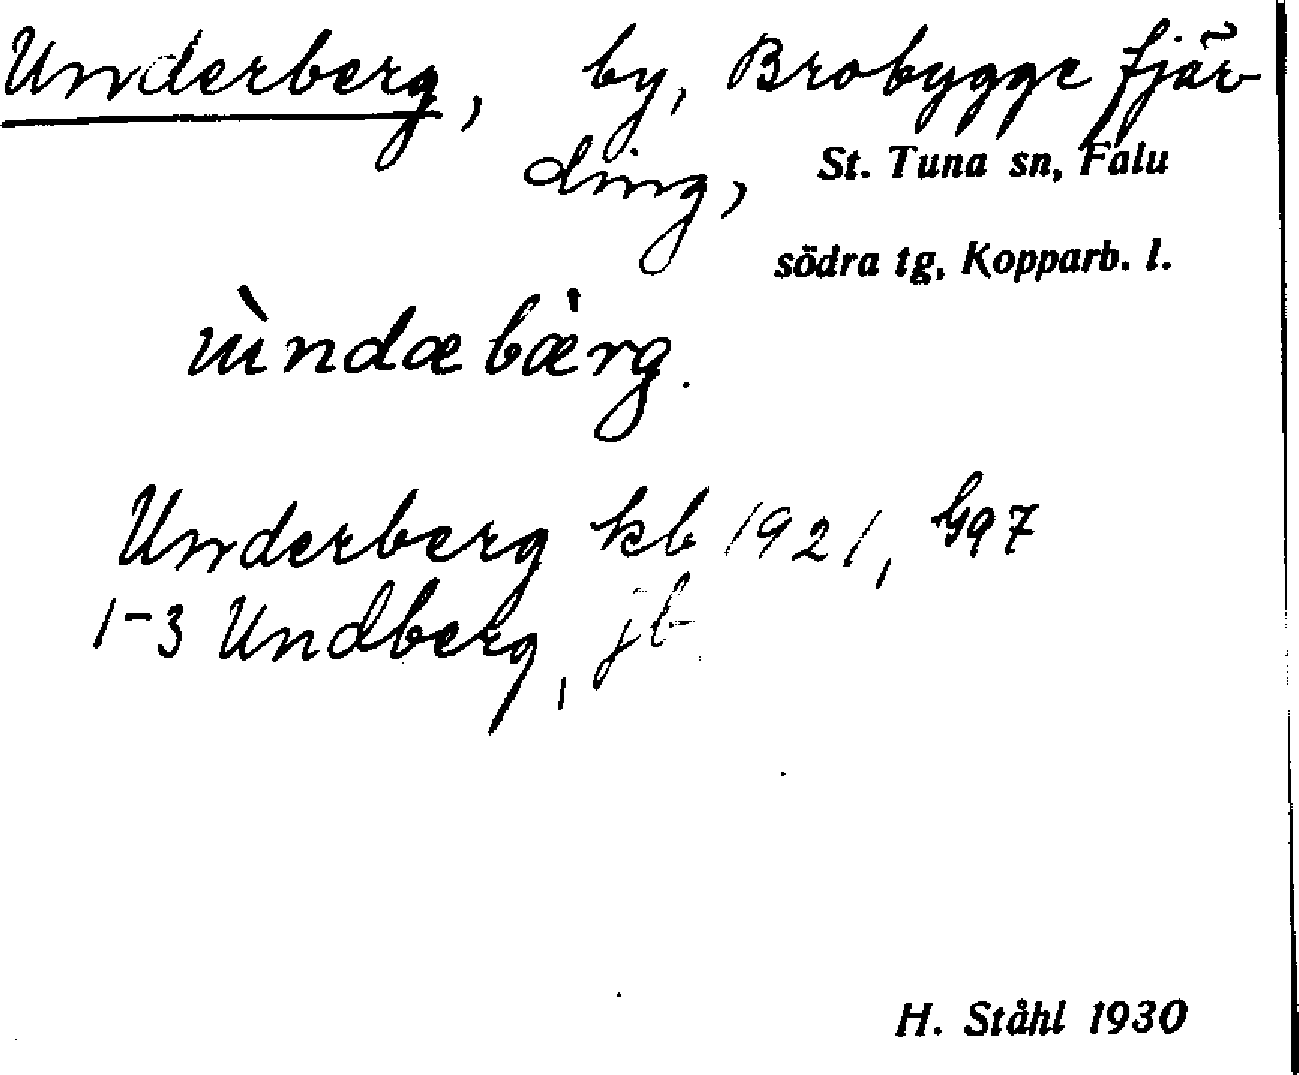 Underberg, by, Brobygge fjär
ding, St. Tuna sn, Falu
södra tg, Kopparb. l.
ùndæbæ̀rg.
Underberg kb 1921, G97
1-3 Undberg, jb
H. Ståhl 1930